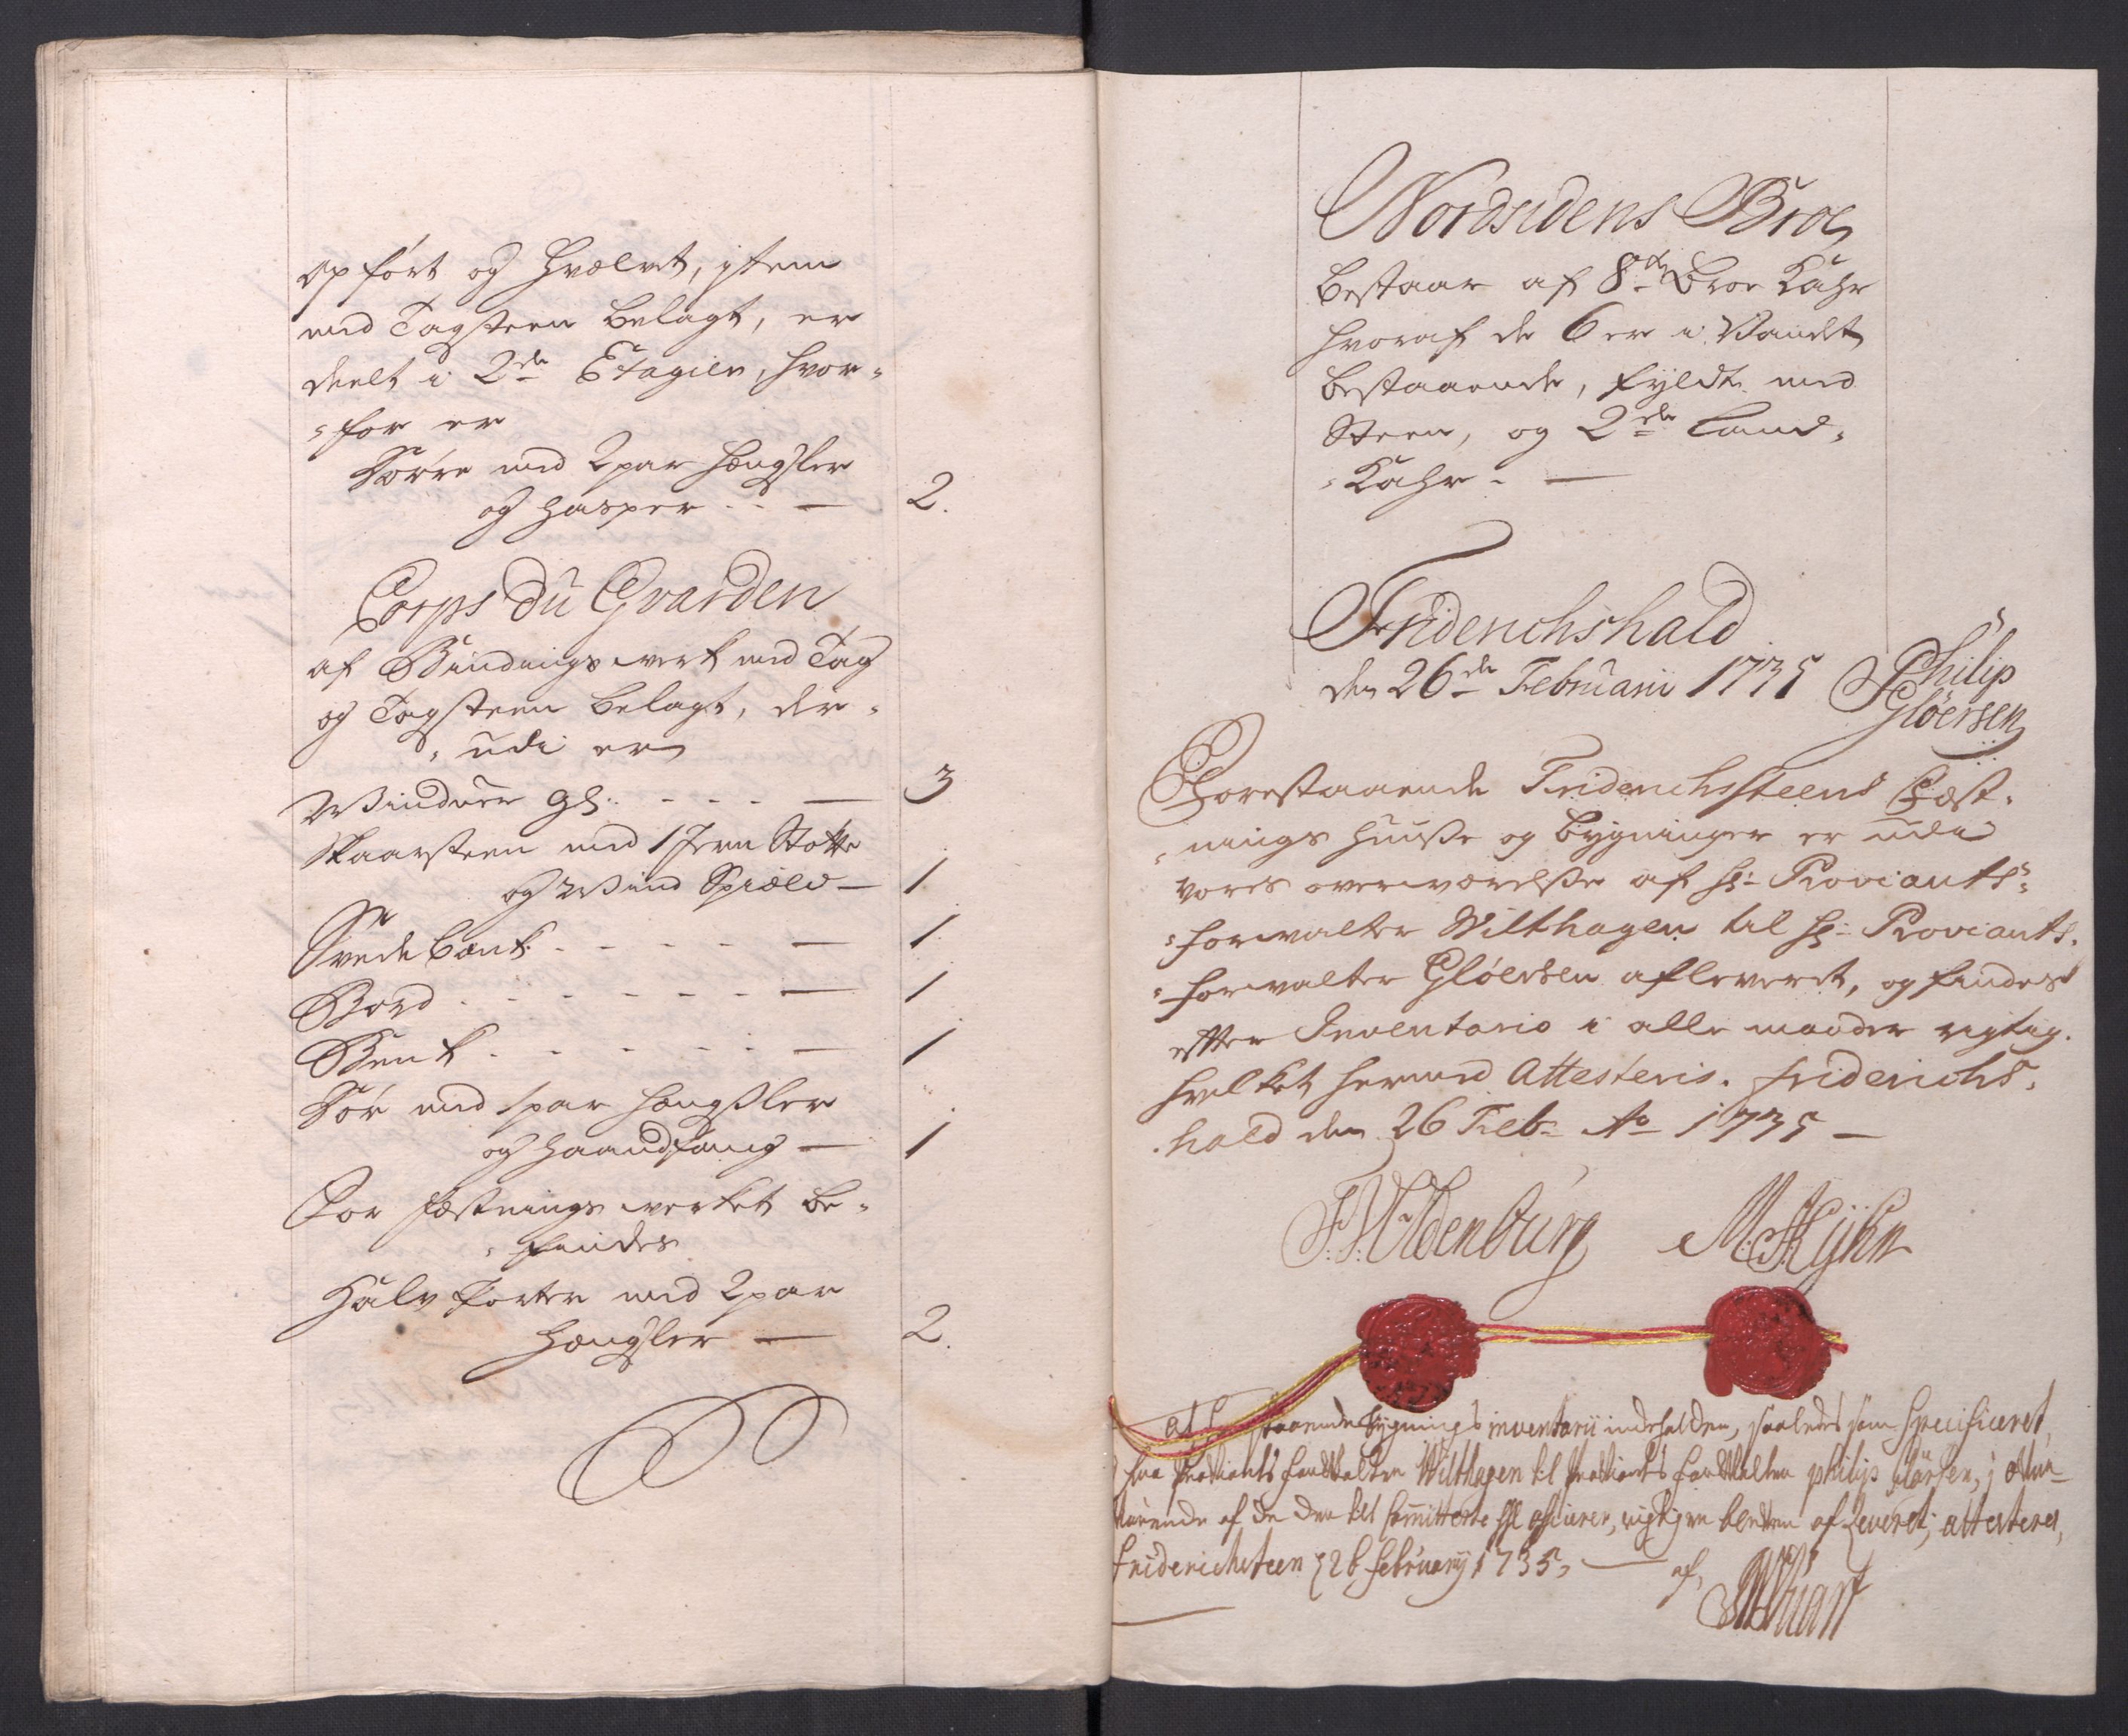 opført og hvælvt, jtem
med Tagsteen belagt, er
deelt i 2de Etagier, hvor-
-for er
Dørre med 2 par hængsler
og hasper - - — 2.
Corps du Gvarden
af Bindingsverk med Tag
og Tagsteen belagt, der-
-udi er
Winduer gl: - - - — 3
Skaarsteen med 1 Jern Støtte
og Wind Spiæld — 1
Brede bænk - - - - - — 1
Bord - - - - - - - — 1
Benk - - - - - - — 1
Dør med 1 par hængsler
og haandfang — 1
For Fæstnings werket be-
-findes
Halv Porter med 2 par
hængsler — 2.
Nordsidens Broe
bestaar af 8te Broe Kahr
hvoraf de 6 er i Vandet
bestaaende, fyldt med
Steen, og 2de Land-
-Kahr. —
Friderichshald
den 26de Februarii 1735 Philip
Gløersen
Forestaaende Friderichssteens Fæst-
-nings huuse og bygninger er udi
vores overværelse af Hr: Proviants-
-forvalter Wilthagen til Hr: Proviants-
-forvalter Gløersen afleveret, og findes
efter Inventario i alle maader rigtig.
hvilket hermed Attesteris. Friderichs-
-hald den 26 Feb: Ao 1735 —
at staaende bygnings inventarii indeholden, saaledes som Specificeret,
fra Proviants forvalter Wilthagen til Proviants forvalter philip Glørsen, j ofver-
værende af de der til Committerte Hl officerer, rigtigen blefven af Leveret; attesteres,
Friderichsteen d 26 february 1735, — af,